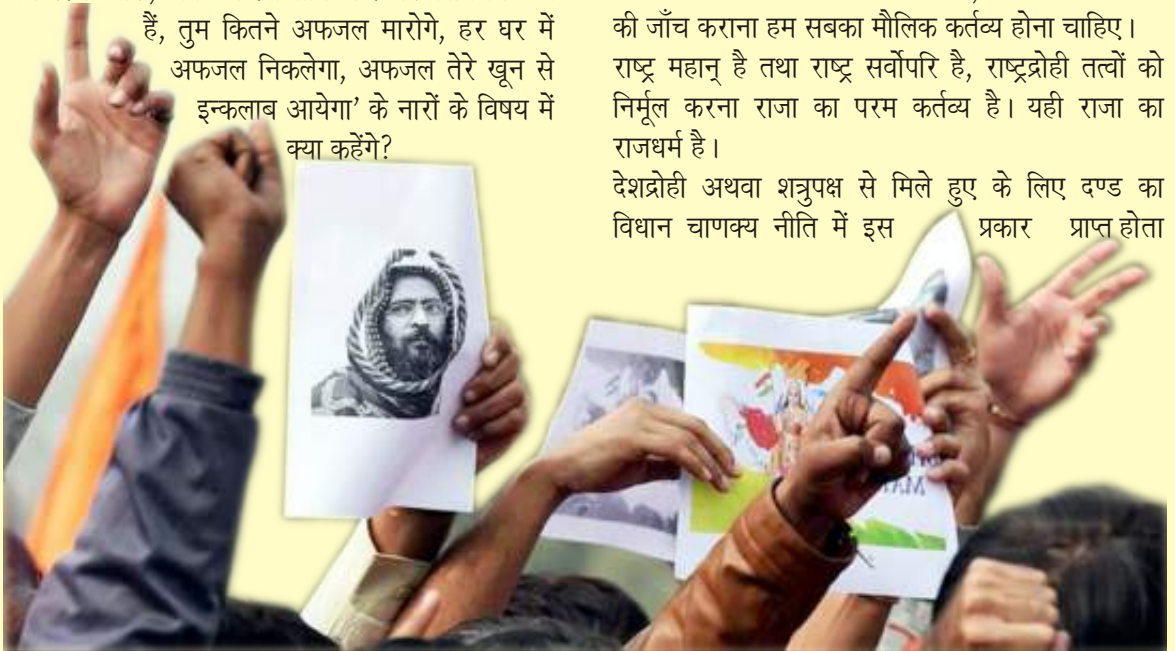 हैं, तुम कितने अफजल मारोगे, हर घर में
अफजल निकलेगा, अफजल तेरे खून से
इन्कलाब आयेगा’ के नारों के विषय में
क्या कहेंगे?
की जाँच कराना हम सबका मौलिक कर्तव्य होना चाहिए।
राष्ट्र महान् है तथा राष्ट्र सर्वोपरि है, राष्ट्रद्रोही तत्वों को
निर्मूल करना राजा का परम कर्तव्य है। यही राजा का
राजधर्म है।
देशद्रोही अथवा शत्रुपक्ष से मिले हुए के लिए दण्ड का
विधान चाणक्य नीति में इस प्रकार प्राप्त होता